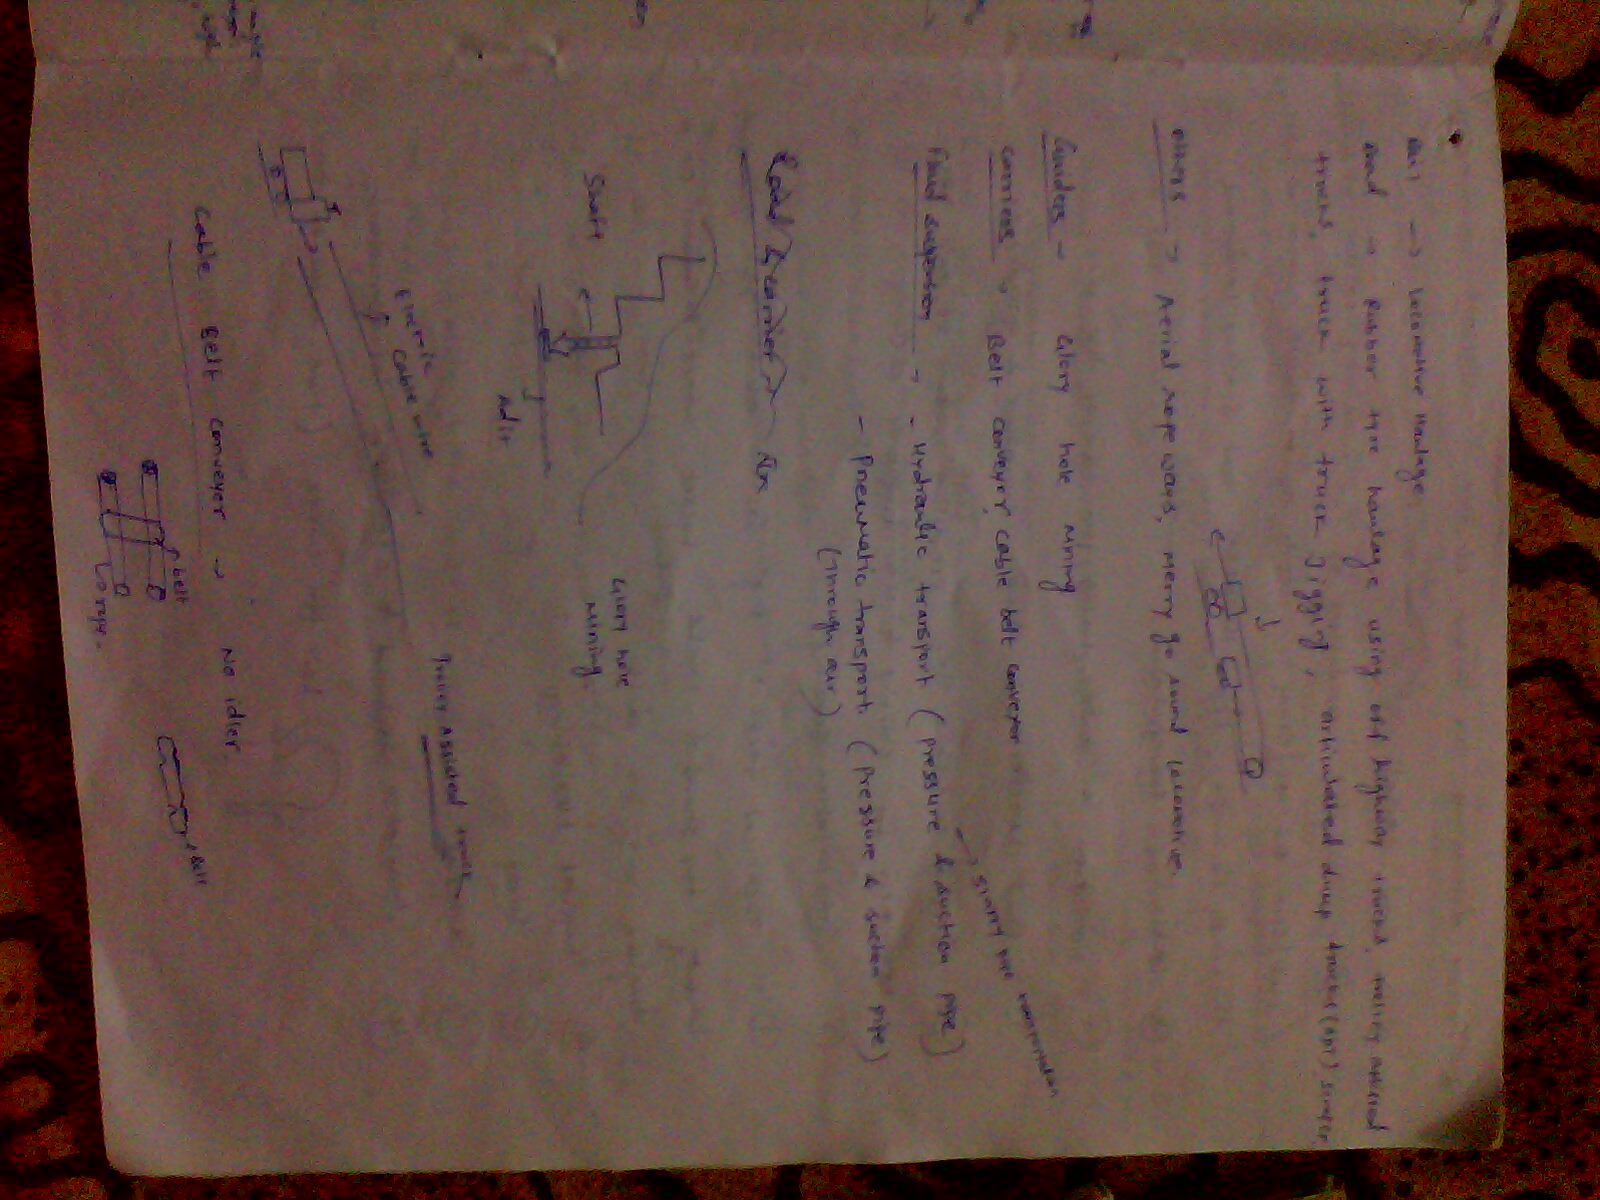 Rail → Locomotive Haulage
Road → Rubber tyre haulage using off highway trucks, trolley assisted
trucks, truck with truck Jigging, articulated dump truck (ADT), simple
others → Aerial rope ways, merry go round locomotive.
Guides - Glory hole mining
carriers → Belt conveyer, cable belt conveyor
→ slurry pipe transportation
Fluid suspension → - Hydraulic transport (pressure & suction pipe)
- Pneumatic transport. (pressure & suction pipe)
(through air)
Shaft
Adit
Glory hole
mining.
Electric
cable wire
Trolley Assisted truck
Cable Belt conveyer → No idler.
belt
rope.
Belt